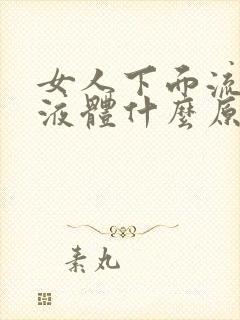 女人下而流
液體什麼原
素丸